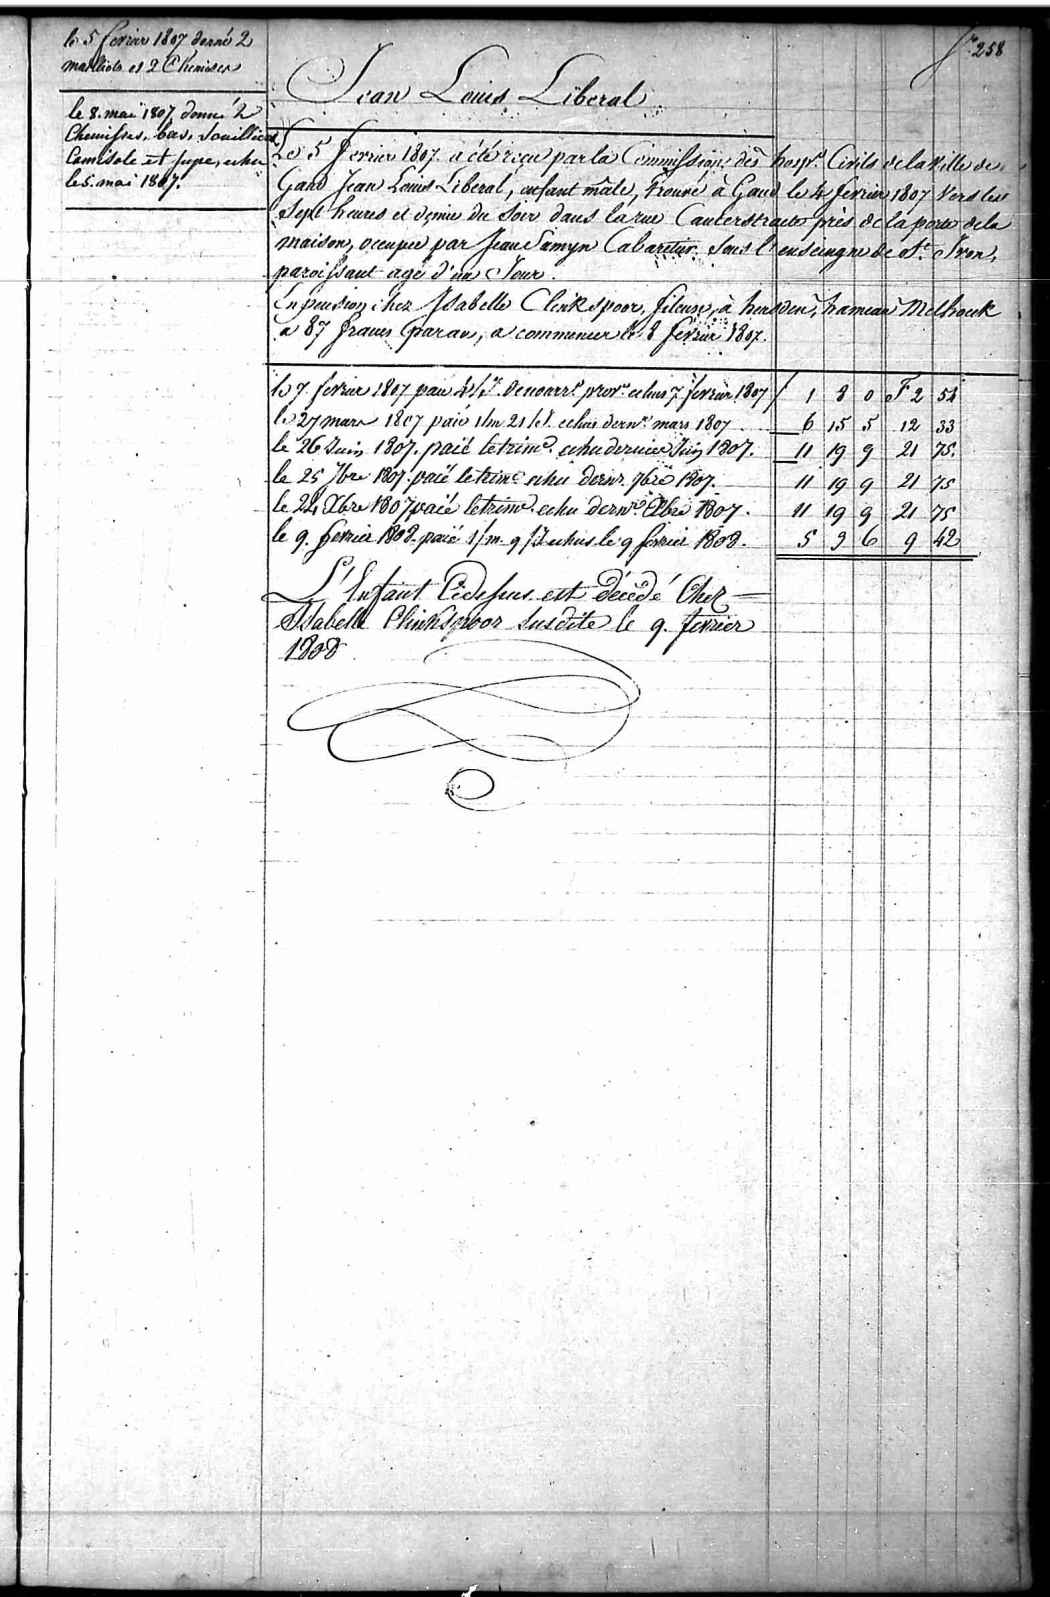 fo. 258
le 5 fevrier 1807 donné 2
maillots et 2 Chemises
le 8. mai 1807 donné 2
Chemisses, bas, Souilliers,
Camisole et jupe, echu
le 5. mai 1807.
Jean Louis Liberal
Le 5 fevrier 1807 a été reçu par la Commission des hosp.s Civils de la Ville de
Gand Jean Louis Liberal, enfant mâle, trouvé à Gand le 4 fevrier 1807 vers les
Sept heures et demie du Soir dans la rue Cauterstraete près de la porte de la
maison, occupée par Jean Samyn Cabaretier Sous l'enseingne de St. Ivon,
paroissant agé d'un Jour.
En pension chez Isabelle Clinkspoor, fileuse, à heusden, hameau Melhoek
à 87 francs par an, a commencer le 8 fevrier 1807.
le 7. fevrier 1807 paié echus 7 fevrier 1807 / 1 8 0 F 2 54
le 27 mars 1807 paié 1/m 21/j echus dern.r mars 1807 6 15 5 12 33
le 26 Juin 1807. paié le trim.e echu dernier Juin 1807. 11 19 9 21 75.
le 25 7bre 1807. paié le trim.e echu dern.r 7bre 1807. 11 19 9 21 75
le 24 Xbre 1807 paié le trim.e echu dern.r Xbre 1807. 11 19 9 21 75
le 9. fevrier 1808. paié 1/m 9/j echus le 9 fevrier 1808. 5 3 6 9 42
L'Enfant Cidessus est décédé Chez
Isabelle Clinkspoor susdite le 9. fevrier
1808